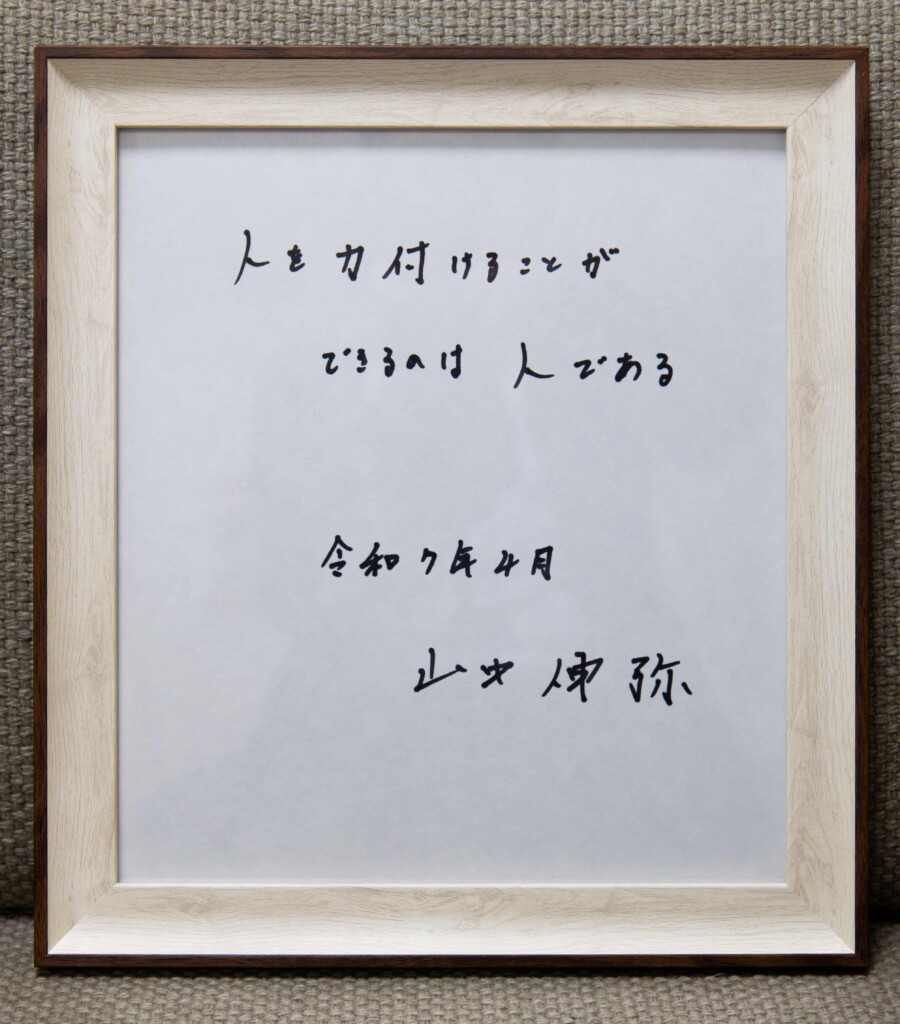 人を力付けることが
できるのは 人である
令和7年4月
山中伸弥